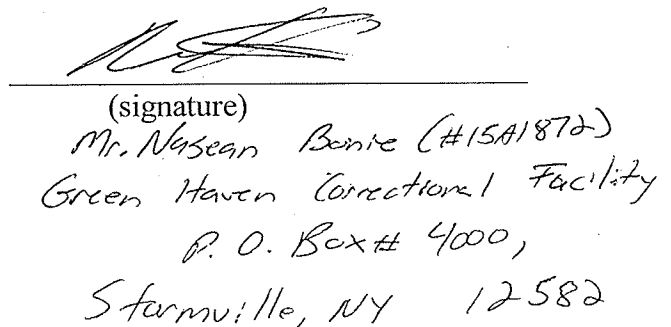 (signature)
Mr. Nasean Bonie (#15A1872)
Green Haven Correctional Facility
P.O. Box# 4000,
Stormville, NY 12582